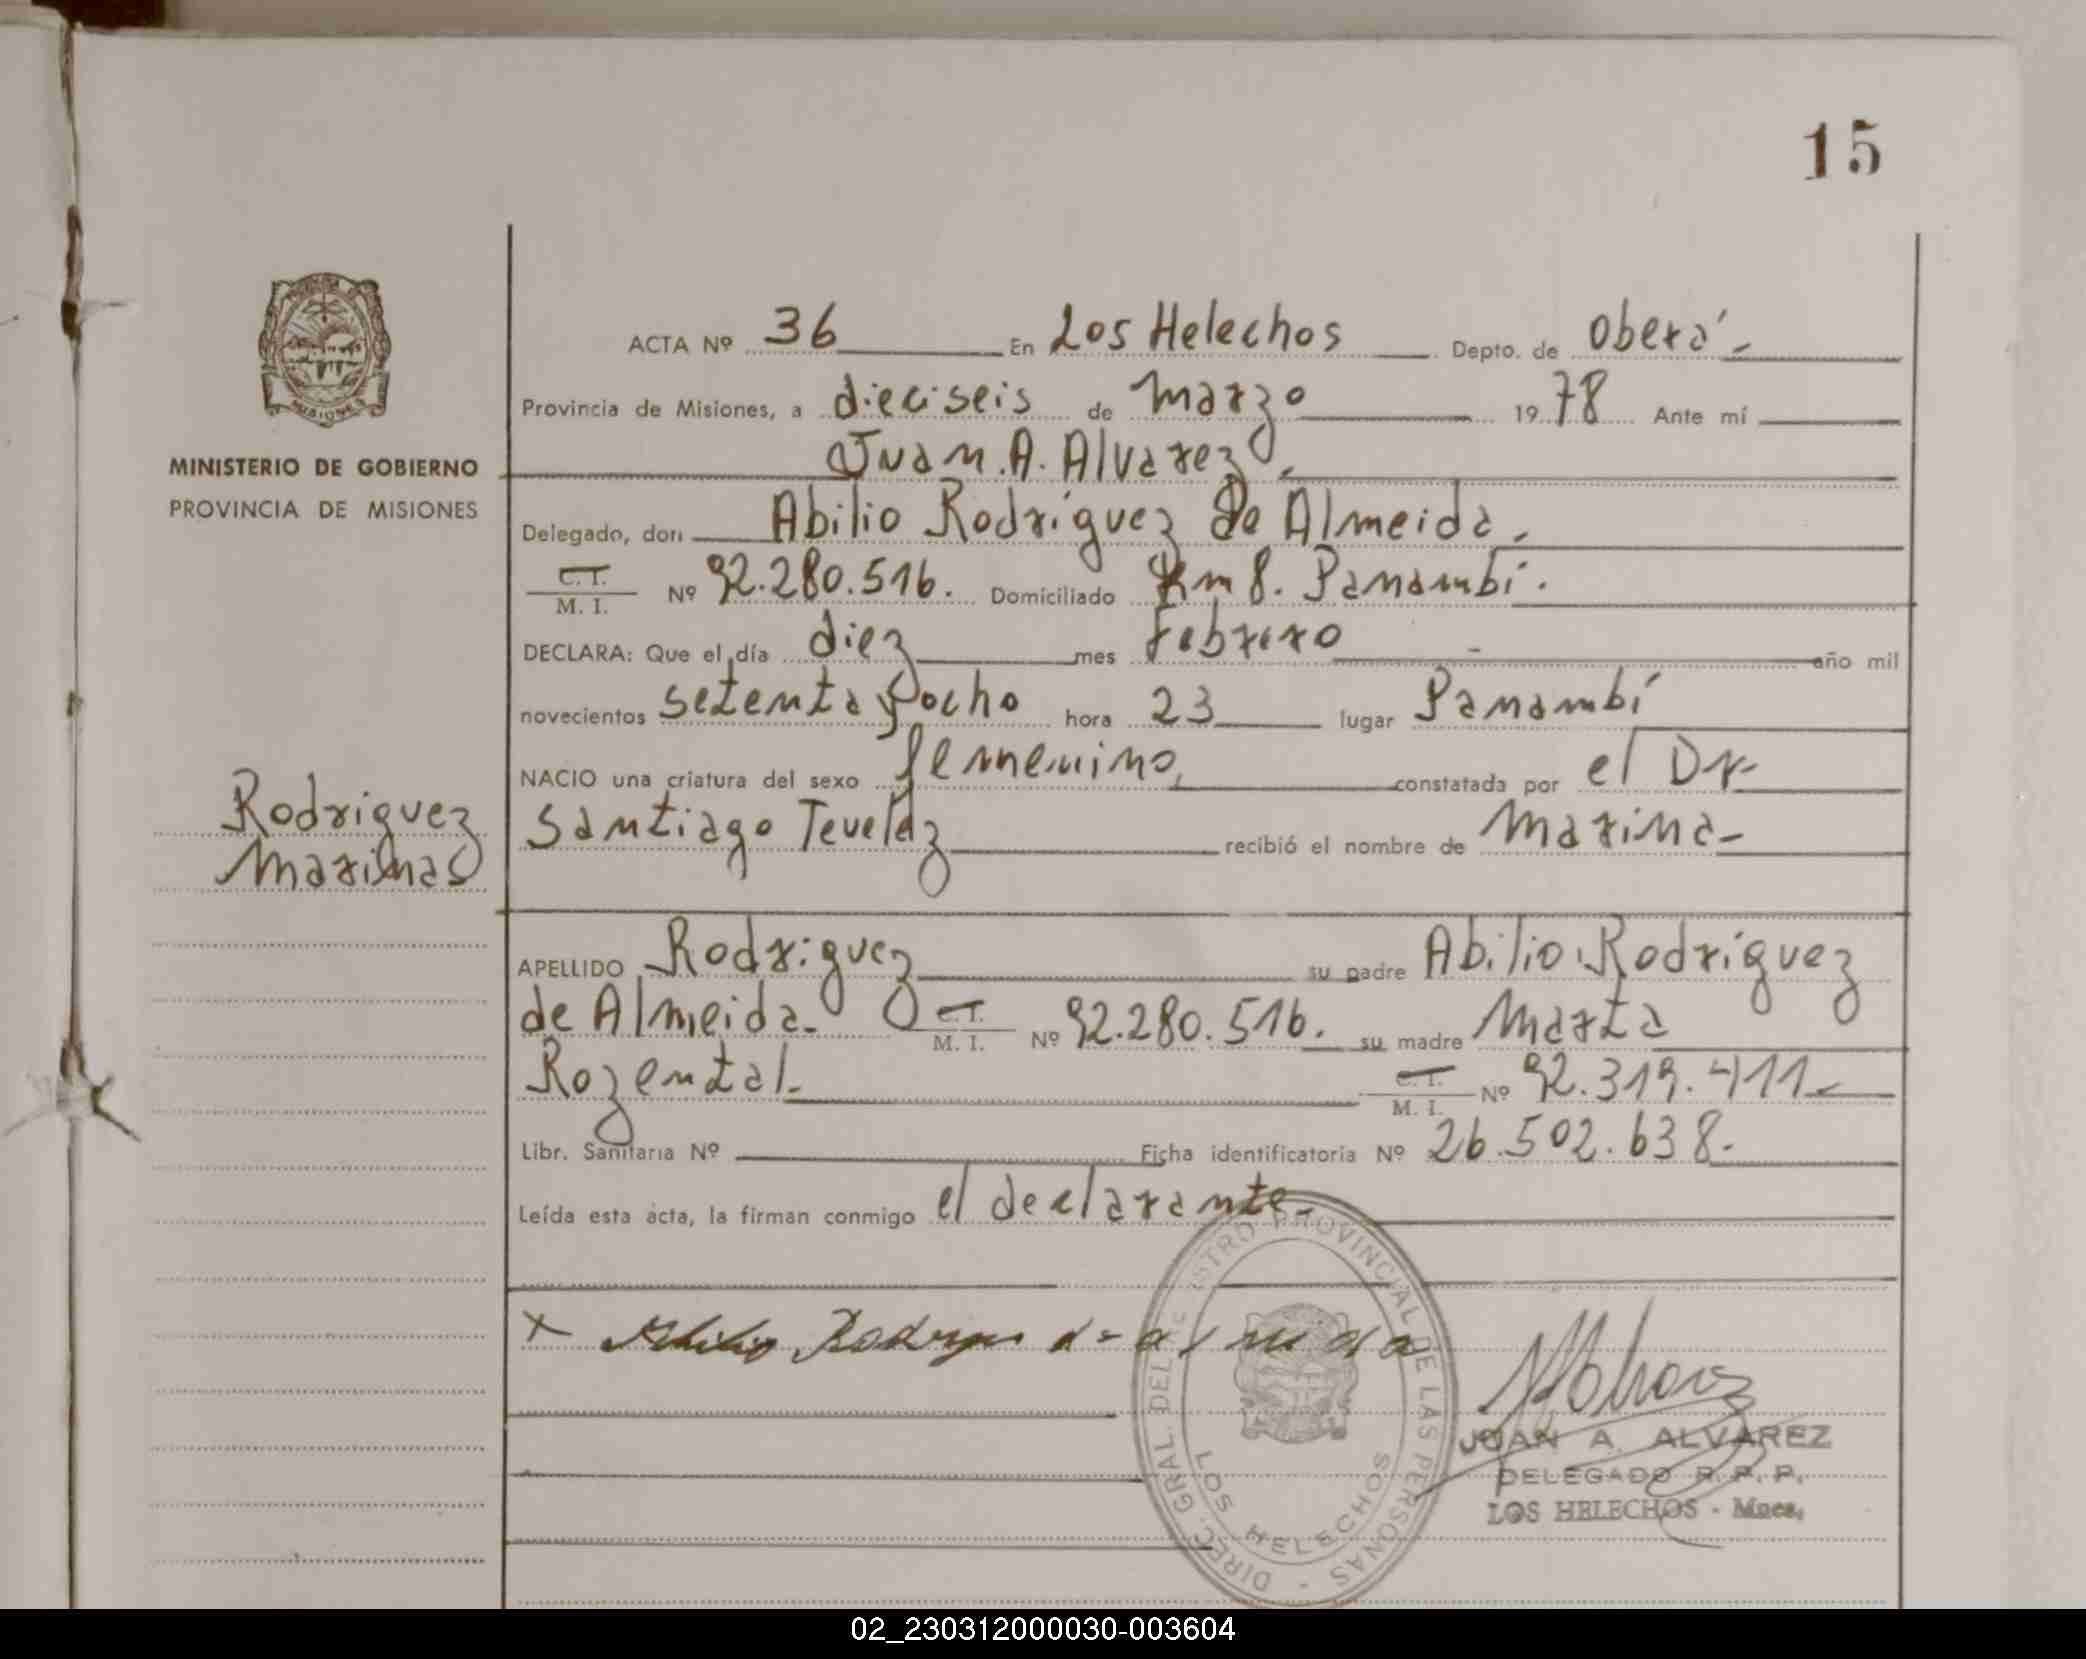 15
MINISTERIO DE GOBIERNO
PROVINCIA DE MISIONES
Rodriguez
Marina
ACTA Nº 36 En Los Helechos Depto. de Oberá
Provincia de Misiones, a dieciseis de Marzo 1978 Ante mí
Juan. A. Alvarez.
Delegado, don Abilio Rodriguez De Almeida.
C. I.
M. I. Nº 92.280.516. Domiciliado Km 8. Panambí.
DECLARA: Que el día diez mes Febrero año mil
novecientos setenta y ocho hora 23 lugar Panambí
NACIO una criatura del sexo femenino, constatada por el Dr
Santiago recibió el nombre de Marina
APELLIDO Rodriguez su padre Abilio Rodríguez
de Almeida. C. I.
M. I. Nº 92.280.516. su madre Marta
Rozental C. I.
M. I. Nº 92.319.411
Libr. Sanitaria Nº Ficha identificatoria Nº 26.502.638.
Leída esta acta, la firman conmigo el declarante.
DIREC. GRAL. DEL PROVINCIAL DE LAS PERSONAS
LOS HELECHOS
MISIONES
JUAN A. ALVAREZ
DELEGADO R. P. P.
LOS HELECHOS - Mnes.
02_230312000030-003604